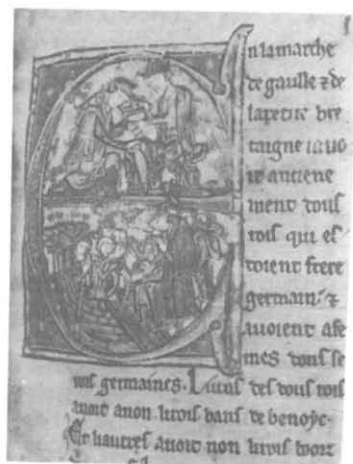 En lamarche
de gaulle ⁊ de
lapetite bre
taigne iauo
it anciene
ment dous
rois qui es
toient frere
germain· ⁊
auoient afe
mes dous se
rors germaines. Liuns des dous rois
auoit anon lirois bans de benoyc.
Et liautres auoit non lirois boort